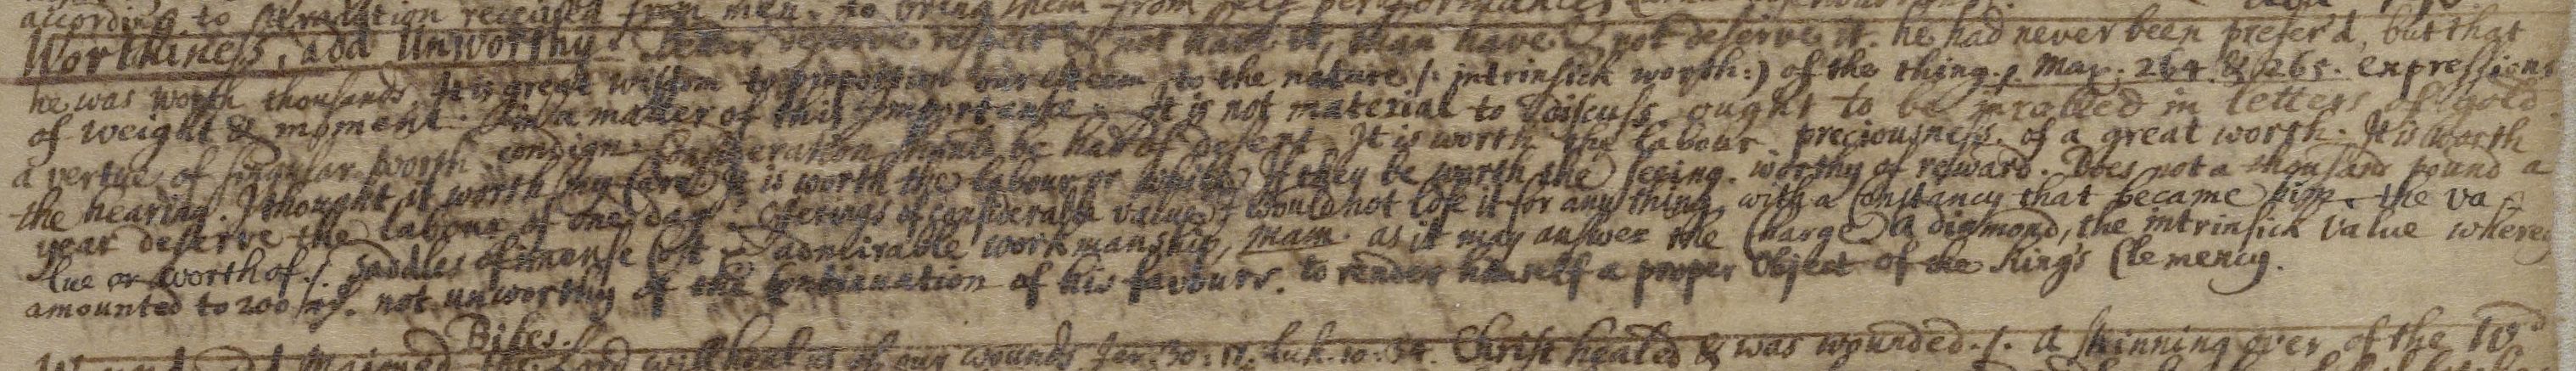 according to tradition received from men. to bring them from self performances
Worthiness, add Unworthy. Better deserve respect & not have it, than have & not deserve it. he had never been prefer'd, but that
he was worth thousands. It is great wisdom to proportion our esteem to the nature /: intrinsick worth:) of the thing./. Man. 264 & 265. expressions
of weight & moment. in a matter of this importance. It is not material to discuss. ought to be inrolled in letters of gold
a vertue of singular worth. condign. Consideration must be had of desert. It is worth the labour. preciousness. of a great worth. It is worth
the hearing. I thought it worth my care. It is worth the labour or while. If they be worth the seeing. worthy of reward. Does not a thousand pound a
year deserve the labour of one day. Offerings of considerable value. I would not lose it for any thing. with a Constancy that became him. the va
lue or worth of./. Saddles of imense Cost & admirable workmanship, Mam. as it may answer the Charge. A diamond, the intrinsick value whereof
amounted to 200 not unworthy of the Continuation of his favours. to render himself a proper Object of the King's Clemency.
Bites./.
Wound Maimed the Lord will heal us of our wounds Jer. 30: 17. Luk. 10: 34. Christ healed & was wounded./. A skinning over of the Wd